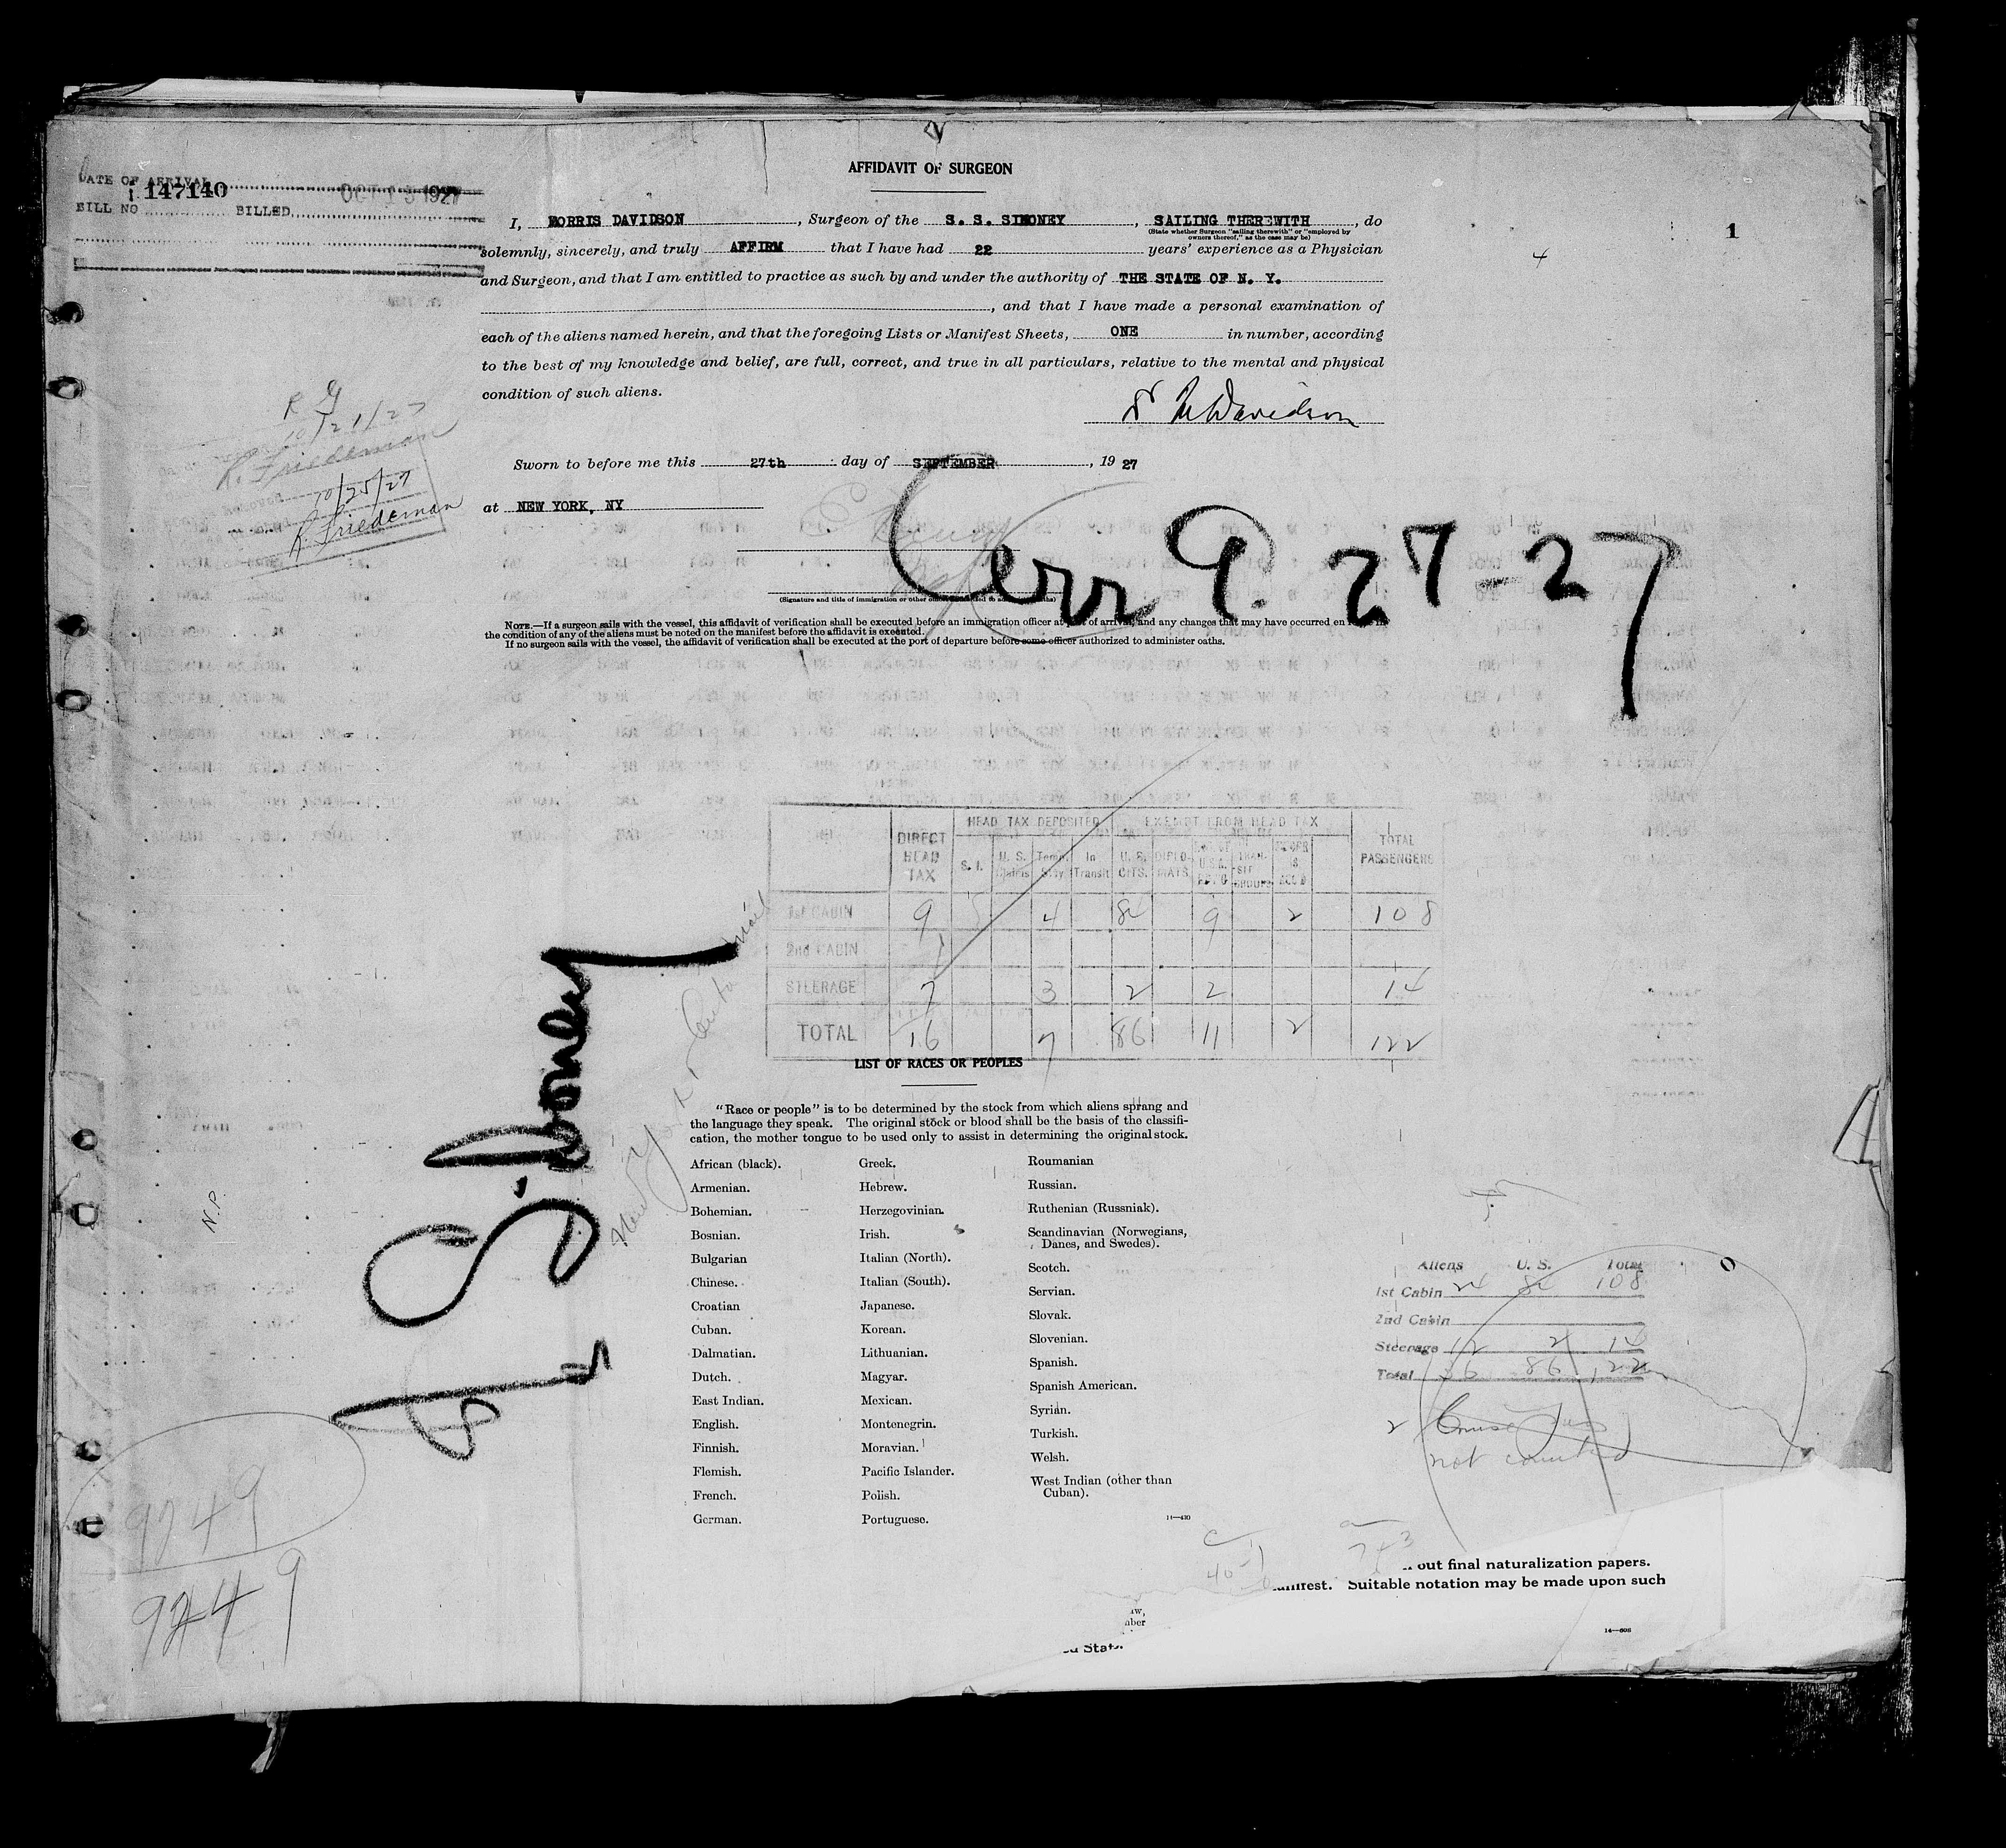 AFFIDAVIT OF SURGEON
DATE OF ARRIVAL
147140 OCT 13 1927
BILL NO BILLED
1
4
I, MORRIS DAVIDSON, Surgeon of the S. S. SIBONEY, SAILING THEREWITH, do
(State whether Surgeon "sailing therewith" or "employed by
owners thereof," as the case may be)
solemnly, sincerely, and truly AFFIRM that I have had 22 years' experience as a Physician
and Surgeon, and that I am entitled to practice as such by and under the authority of THE STATE OF N. Y.
, and that I have made a personal examination of
each of the aliens named herein, and that the foregoing Lists or Manifest Sheets, ONE in number, according
to the best of my knowledge and belief, are full, correct, and true in all particulars, relative to the mental and physical
condition of such aliens.
Davidson
10/21/27
R. Friedeman
10/25/27
R. Friedeman
Sworn to before me this 27th day of SEPTEMBER, 19 27
at NEW YORK, NY
Cerr 9. 27-27
(Signature and title of immigration or other
NOTE.—If a surgeon sails with the vessel, this affidavit of verification shall be executed before an immigration officer at port of arrival, and any changes that may have occurred en
the condition of any of the aliens must be noted on the manifest before the affidavit is executed.
If no surgeon sails with the vessel, the affidavit of verification shall be executed at the port of departure before some officer authorized to administer oaths.
DIRECT HEAD TAX HEAD TAX DEPOSITED EXEMPT FROM HEAD TAX TOTAL PASSENGERS
S. I. U. S. Claims Temp. Stay In Transit U. S. CITS. DIPLOMATS
1st CABIN 9 4 84 9 2 108
2nd CABIN
STEERAGE 7 3 2 2 14
TOTAL 16 7 86 11 2 122
Siboney
New York
N.P.
LIST OF RACES OR PEOPLES
"Race or people" is to be determined by the stock from which aliens sprang and
the language they speak. The original stock or blood shall be the basis of the classifi-
cation, the mother tongue to be used only to assist in determining the original stock.
African (black).
Armenian.
Bohemian.
Bosnian.
Bulgarian
Chinese.
Croatian
Cuban.
Dalmatian.
Dutch.
East Indian.
English.
Finnish.
Flemish.
French.
German.
Greek.
Hebrew.
Herzegovinian.
Irish.
Italian (North).
Italian (South).
Japanese.
Korean.
Lithuanian.
Magyar.
Mexican.
Montenegrin.
Moravian.
Pacific Islander.
Polish.
Portuguese.
Roumanian
Russian.
Ruthenian (Russniak).
Scandinavian (Norwegians,
Danes, and Swedes).
Scotch.
Servian.
Slovak.
Slovenian.
Spanish.
Spanish American.
Syrian.
Turkish.
Welsh.
West Indian (other than
Cuban).
14—430
Aliens U. S. Total
1st Cabin 24 84 108
2nd Cabin
Steerage 12 2 14
Total 36 86 122
2 Cruise
not counted
9249
9249
out final naturalization papers.
Suitable notation may be made upon such
14—608